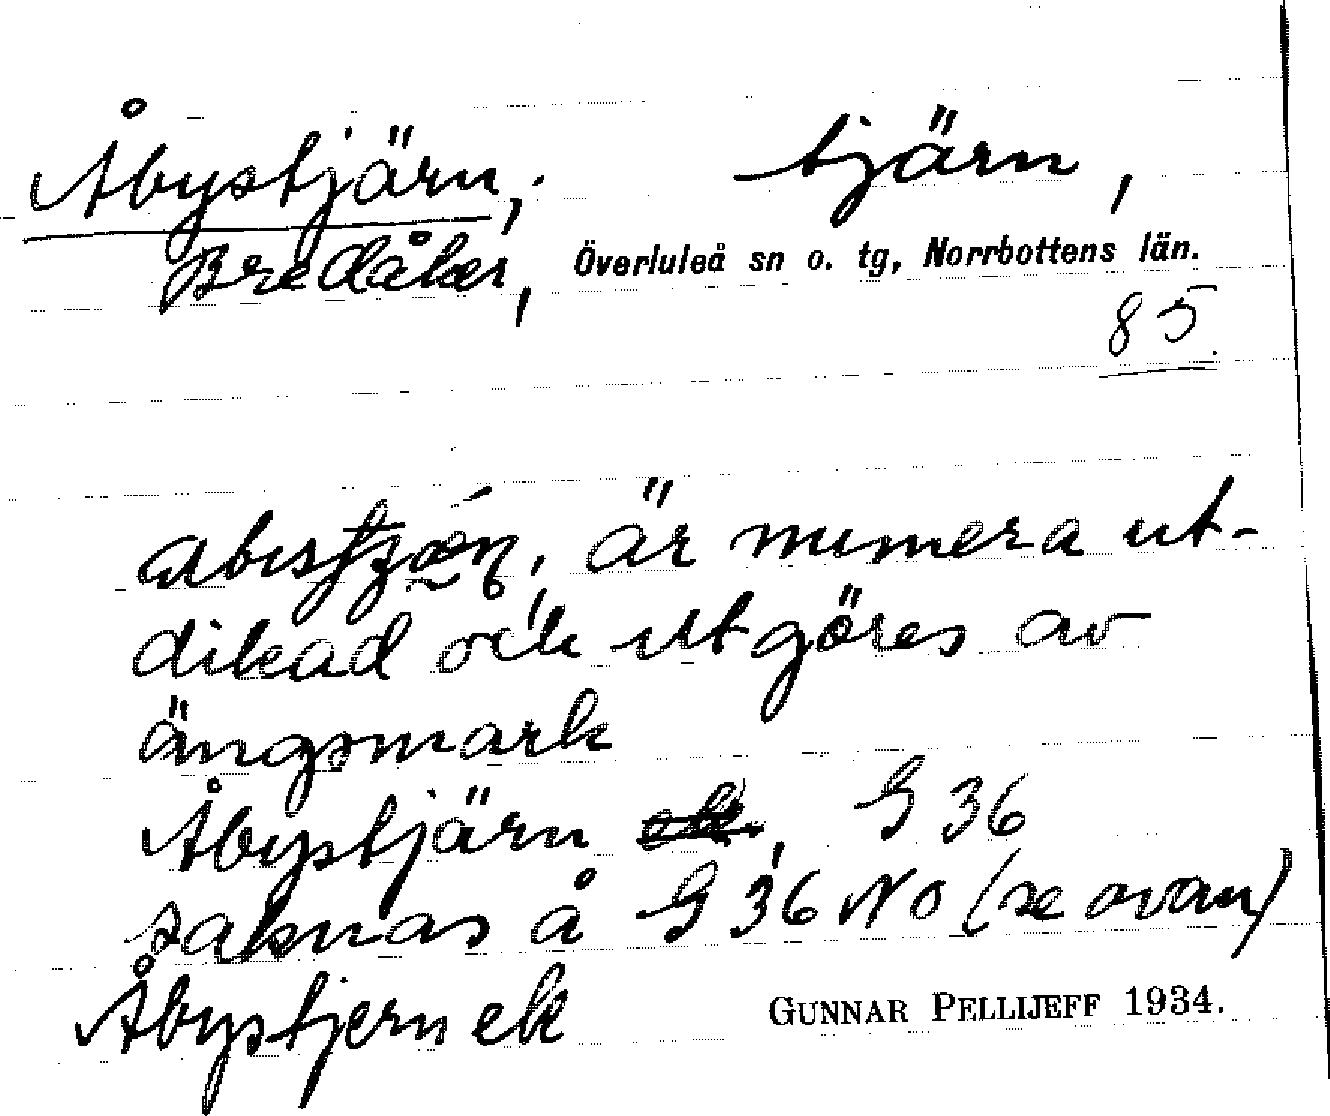 Åbystjärn, tjärn,
Bredåker, Överluleå sn o. tg, Norrbottens län.
85.
är numera ut-
dikad och utgöres av
ängsmark
Åbystjärn , G 36
saknas å G 36 NO (se ovan)
Åbystjern ek
GUNNAR PELLIJEFF 1934.